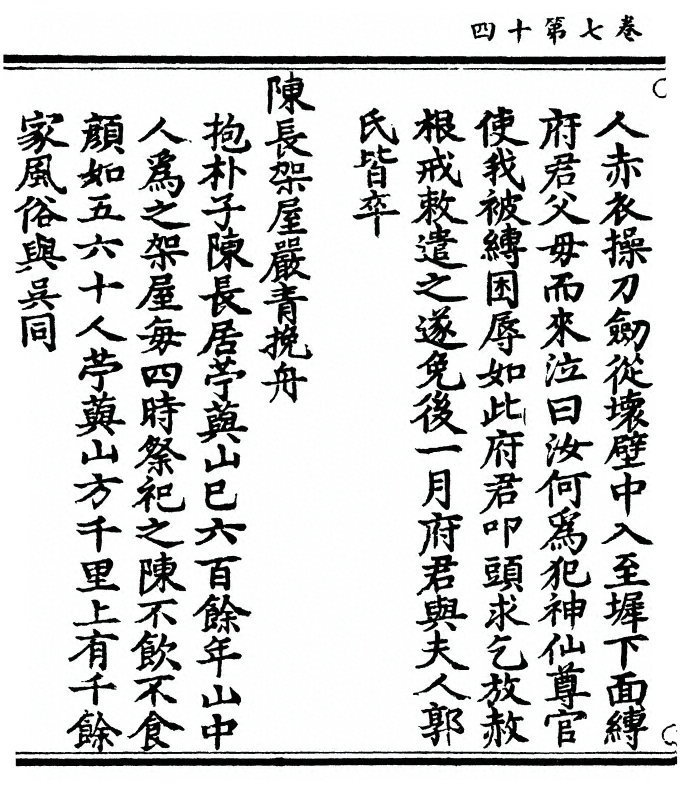 卷七第十四
人赤衣操刀劒從壞壁中入至墀下面縛
府君父母而來泣曰汝何爲犯神仙尊官
使我被縛困辱如此府君叩頭求乞放赦
根戒敕遣之遂免後一月府君與夫人郭
氏皆卒
陳長架屋嚴青挽舟
抱朴子陳長居苧蓂山巳六百餘年山中
人爲之架屋每四時祭祀之陳不飲不食
顔如五六十人苧蓂山方千里上有千餘
家風俗與吳同